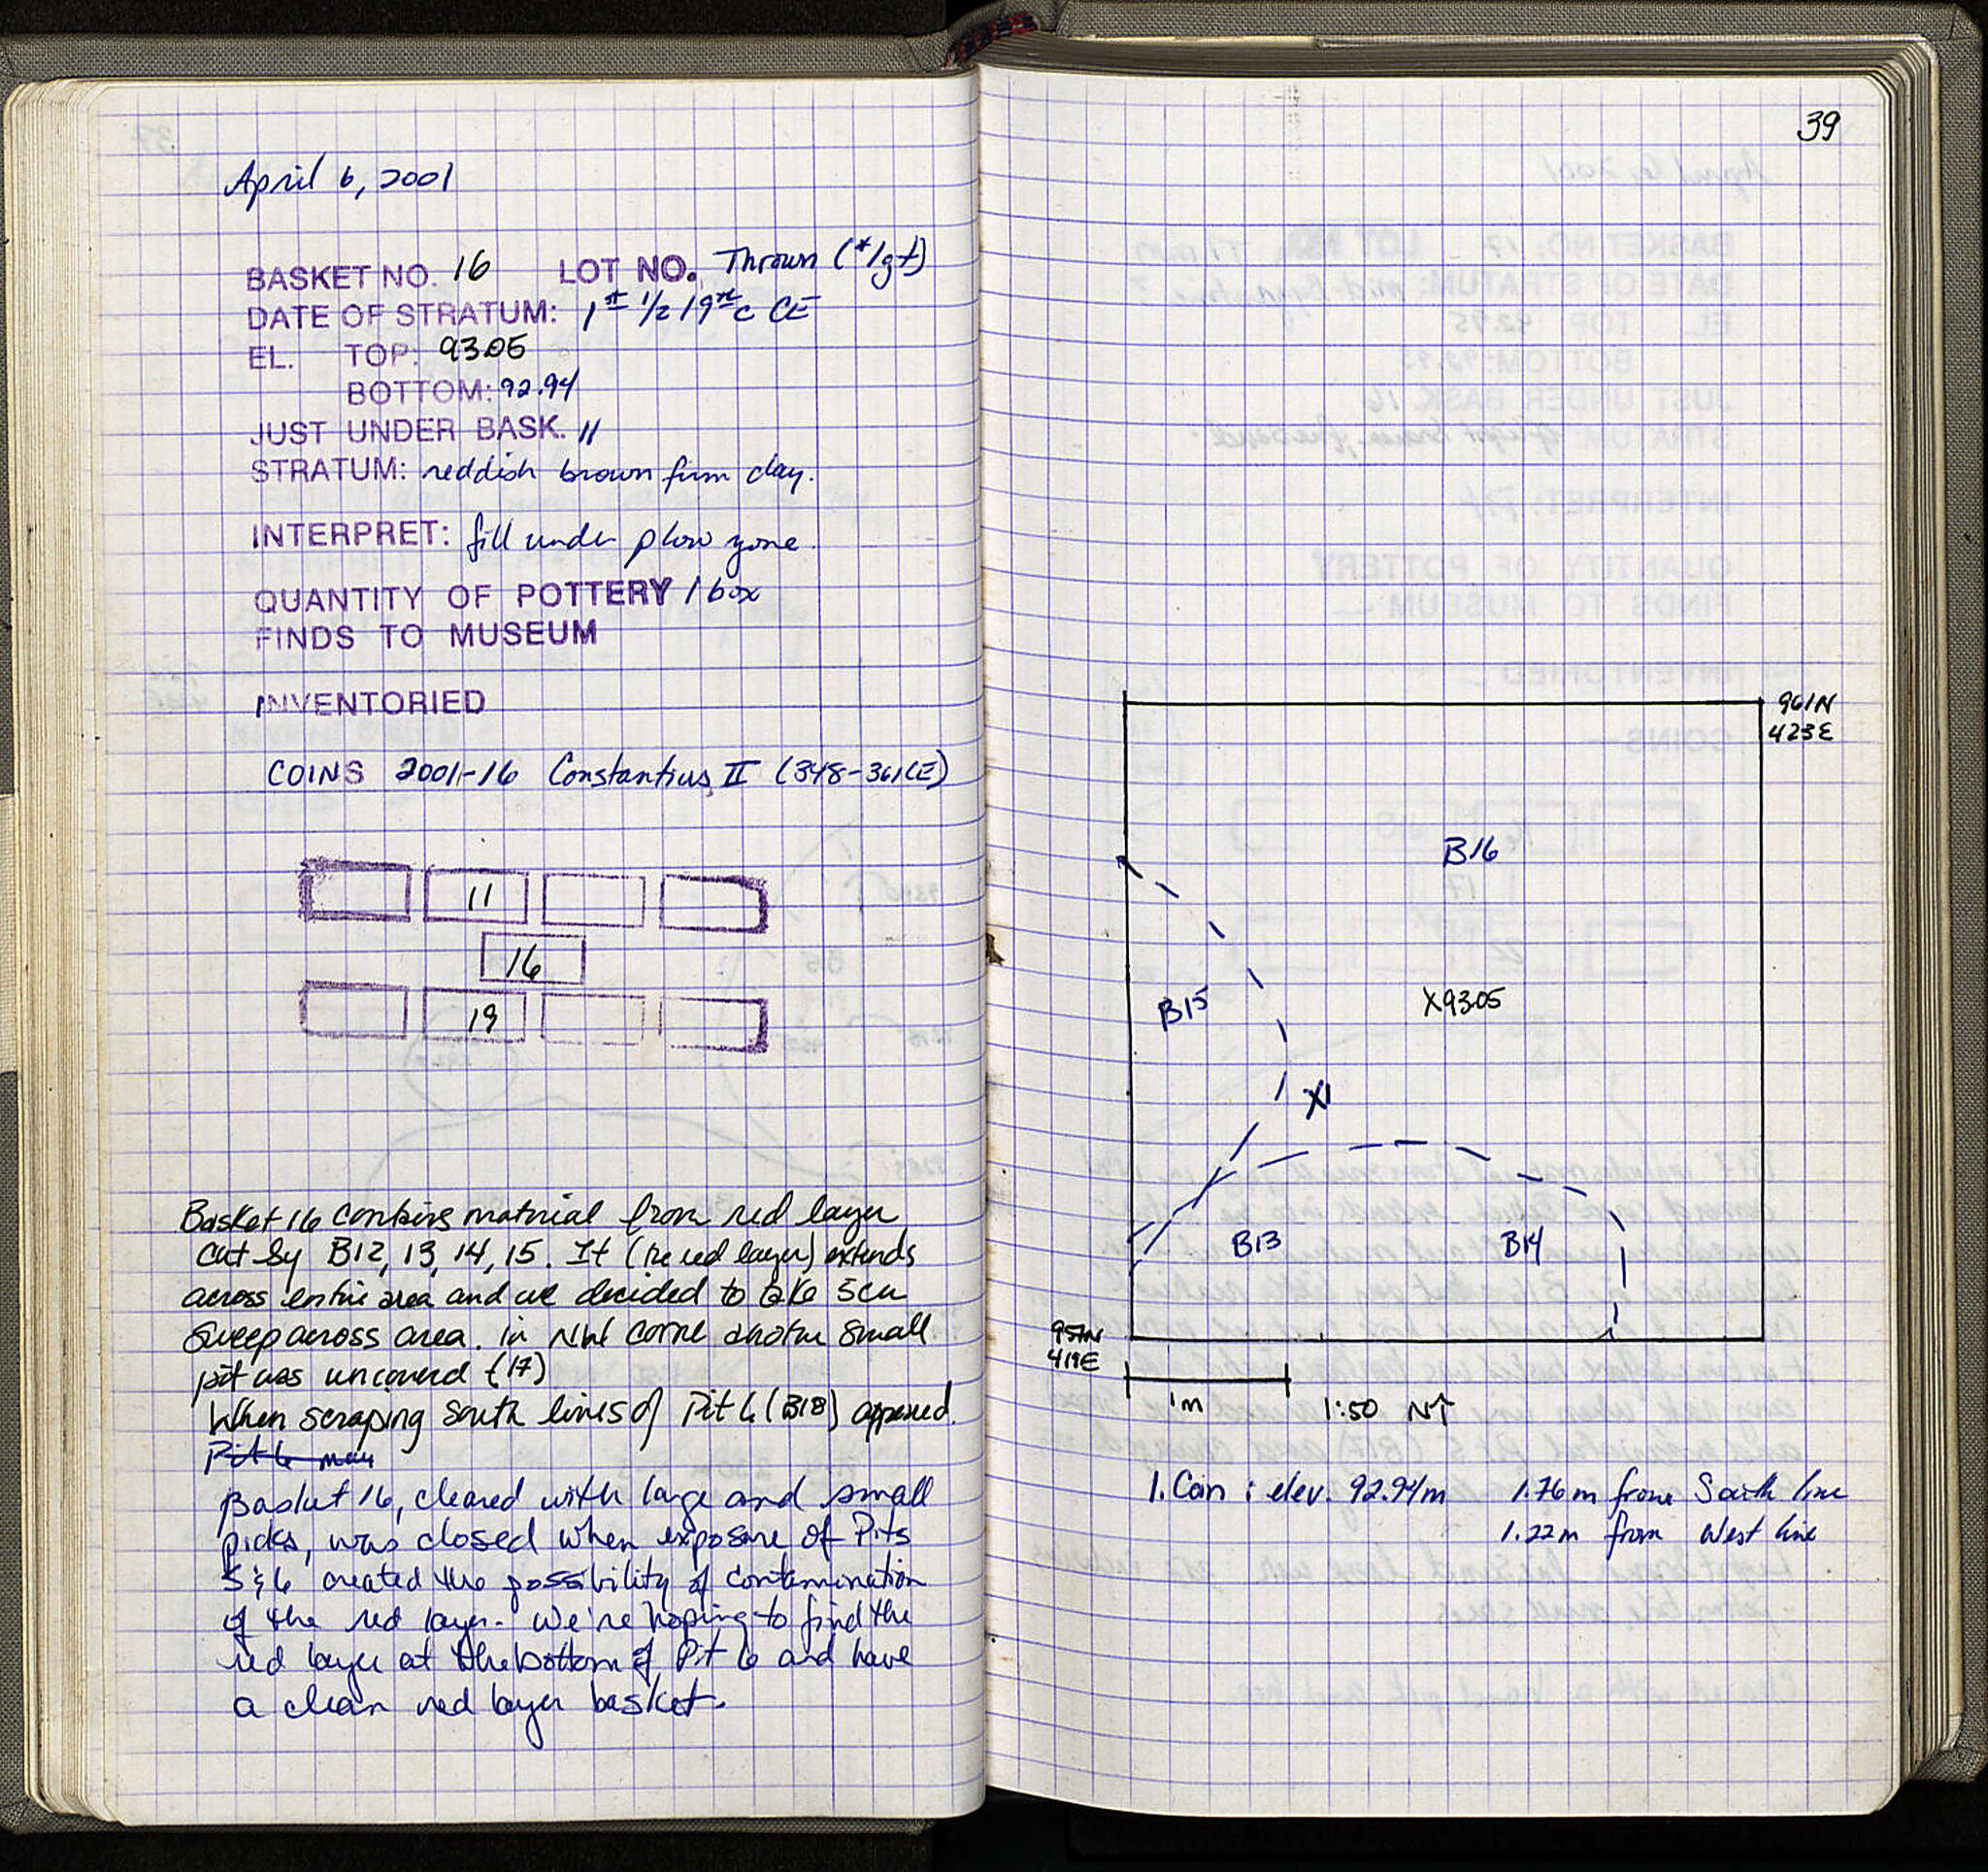 April 6, 2001
BASKET NO. 16 LOT NO. Thrown (*/gt)
DATE OF STRATUM: 1st 1/2 19th c CE
EL. TOP: 93.05
BOTTOM: 92.94
JUST UNDER BASK. 11
STRATUM: reddish brown firm clay.
INTERPRET: fill under plow zone.
QUANTITY OF POTTERY 1 box
FINDS TO MUSEUM
INVENTORIED
COINS 2001-16 Constantius II (348-361CE)
11
16
19
Basket 16 contains material from red layer
cut by B12, 13, 14, 15. It (the red layer) extends
across entire area and we decided to take 5cm
sweep across area. in NW corner another small
pit was uncovered (17)
When scraping south lines of Pit 6 (B18) appeared.
Pit 6 may
Basket 16, cleared with large and small
picks, was closed when exposure of Pits
5 & 6 created the possibility of contamination
of the red layer. We're hoping to find the
red layer at the bottom of Pit 6 and have
a clean red layer basket.
39
961N
423E
B16
B15
X93.05
X1
B13
B14
957N
419E
1m 1:50 N↑
1. Coin : elev. 92.94m 1.76 m from South line
1.22m from West line